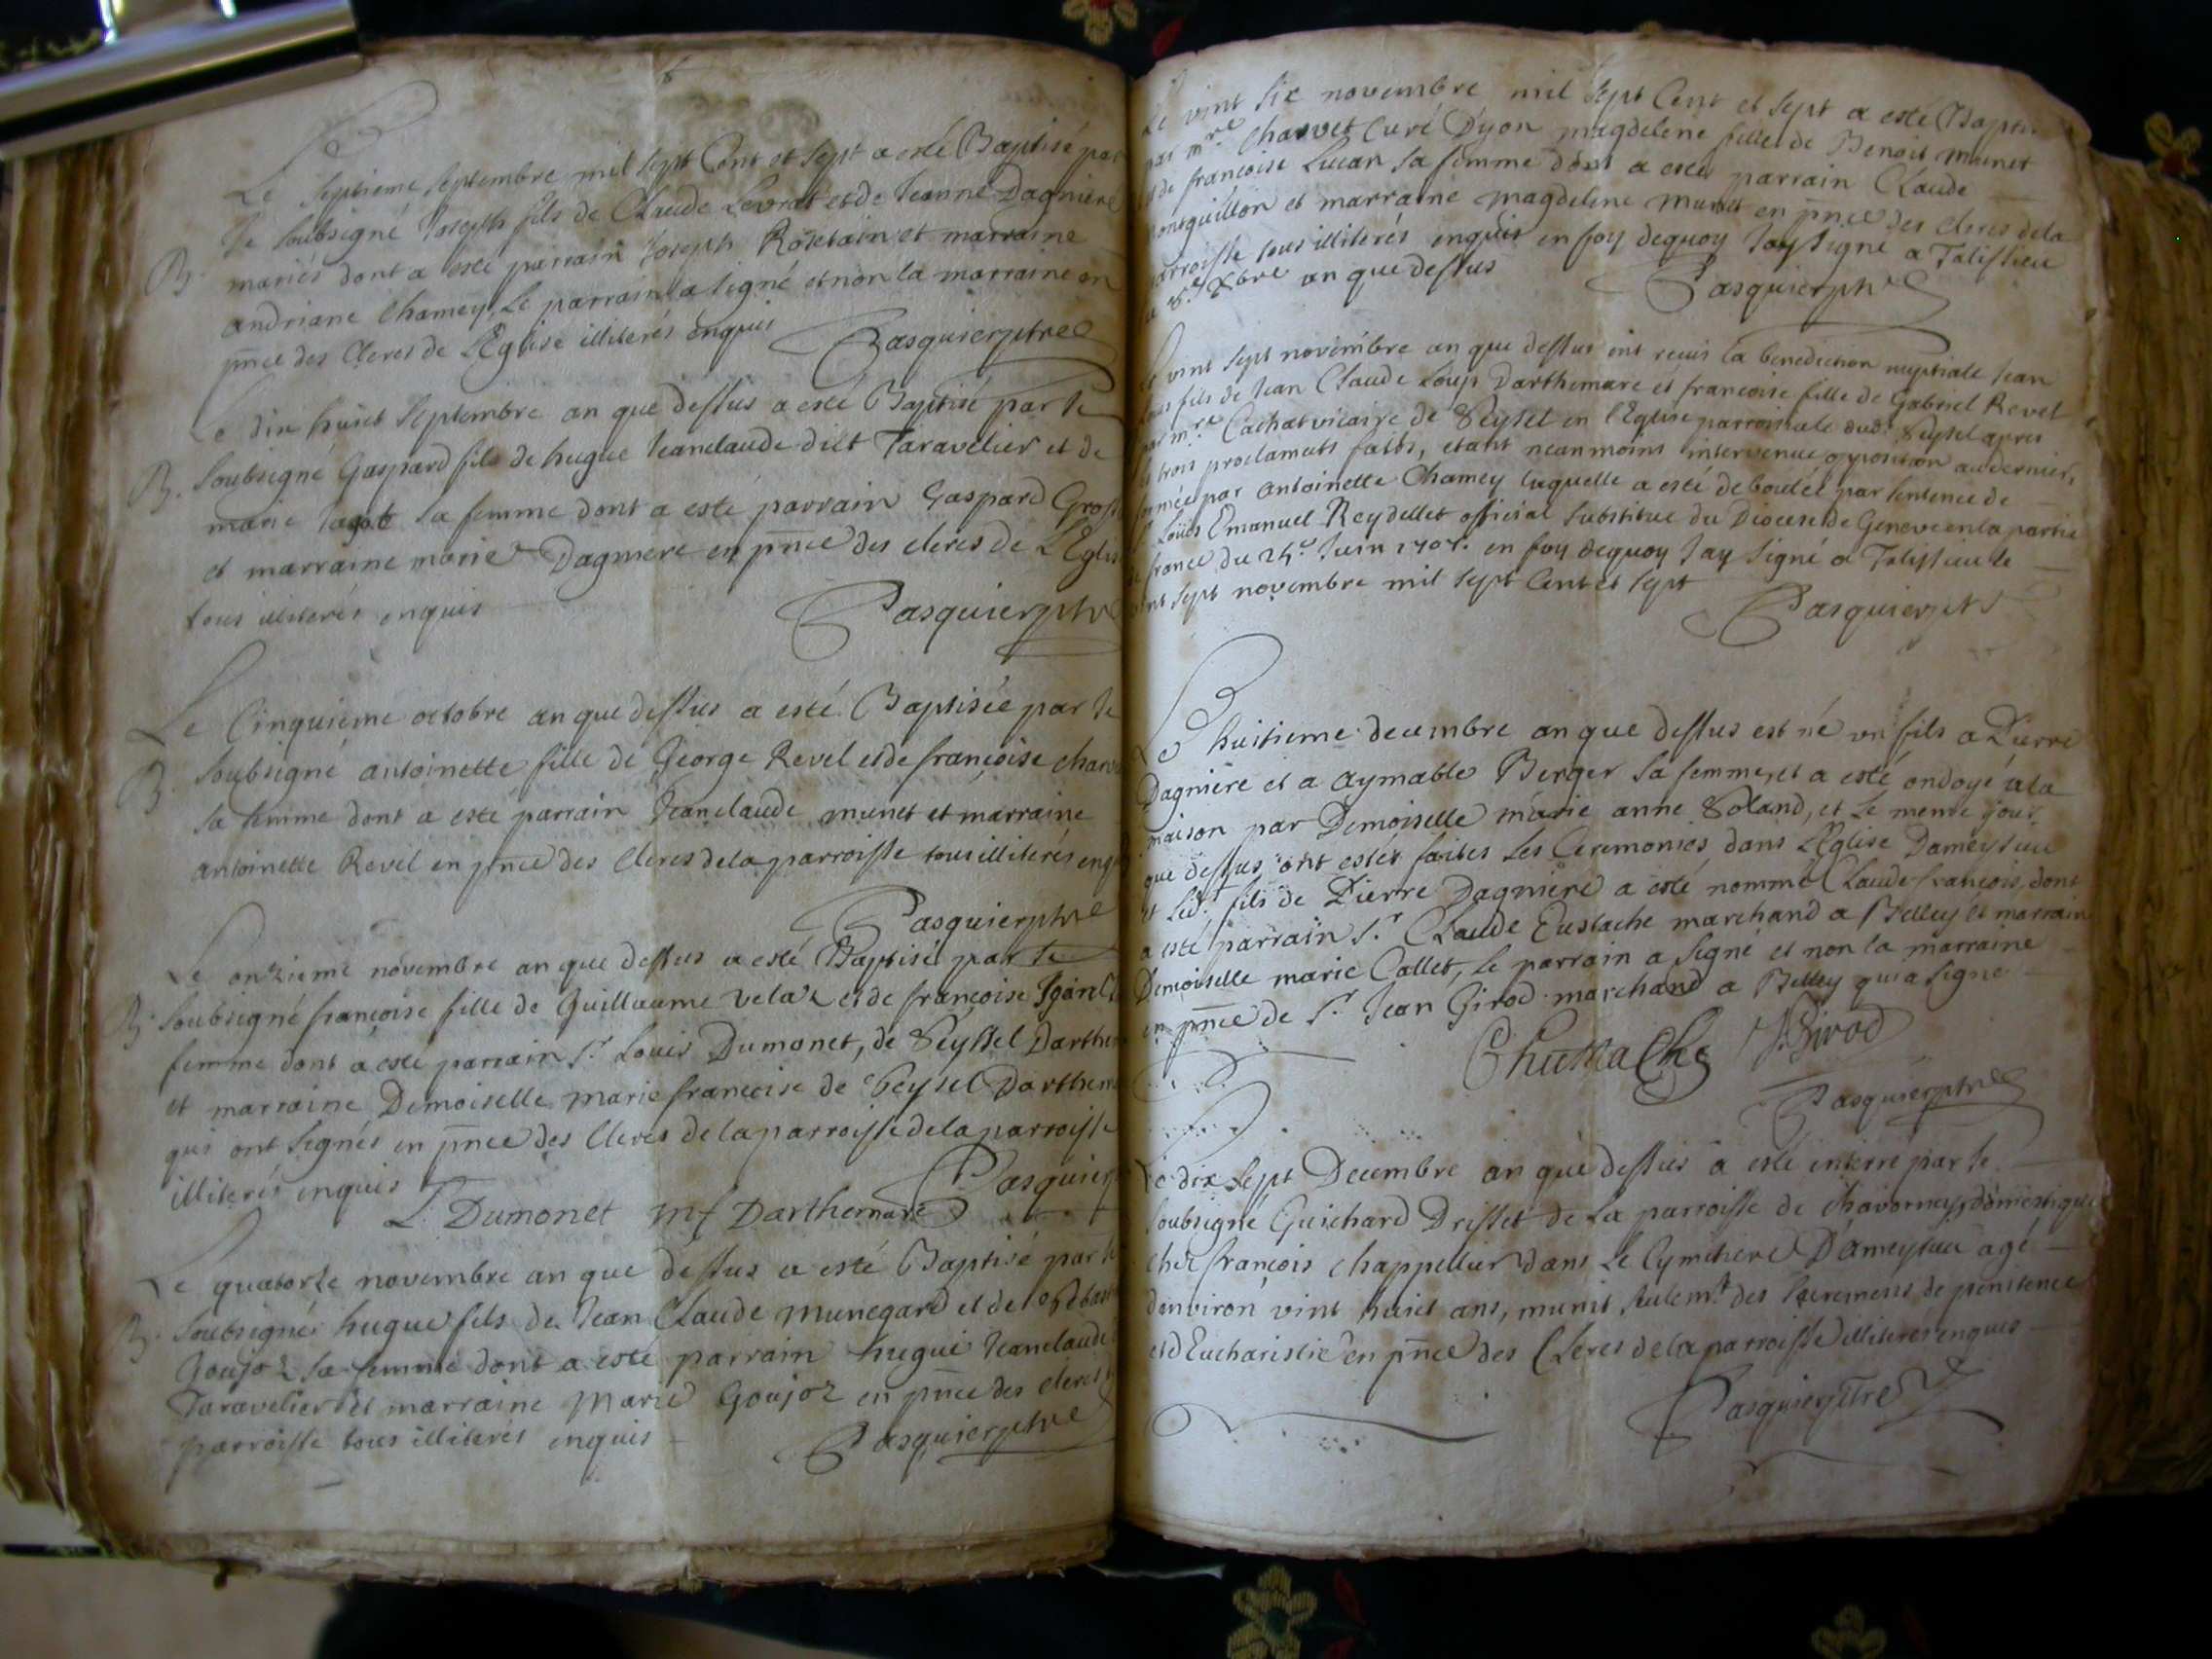 Le septieme septembre mil sept Cent et sept a esté Baptisé par
Je soubsigné Joseph fils de Claude Levrat et de Jeanne Dagniere
B. mariés dont a esté parrain Joseph Rosetain et marraine
andriane Chamey, Le parrain a signé et non la marraine en
pnce des Clercs de L'Eglise illiterés enquis
Pasquier ptre
Le dix huict Septembre an que dessus a esté Baptisé par Je
B. Soubsigné Gaspard fils de hugue Jeanclaude dict Taravelier et de
marie sa femme dont a esté parrain Gaspard
et marraine marie Dagniere en pnce des clercs de L'Eglise
tous illiterés enquis
Pasquier ptre
Le Cinquieme octobre an que dessus a esté Baptisée par Je
B. Soubsigné antoinette fille de George Revel et de françoise
sa femme dont a esté parrain Jeanclaude munet et marraine
antoinette Revel en pnce des Clercs de la parroisse tous illiterés enq
Pasquier ptre
Le onzieme novembre an que dessus a esté Baptisé par Je
B. Soubsigné françoise fille de Guillaume et de françoise
femme dont a esté parrain Sr Louis Dumonet, de Seyssel
et marraine Demoiselle marie françoise de Seysel
qui ont signés en pnce des Clercs de la parroisse de la parroisse
illiterés enquis
Pasquier
L. Dumonet mf Darthemare
Le quatorze novembre an que dessus a esté Baptisé par Je
B. Soubsigné hugue fils de Jean Claude munegard et de
Goujoz sa femme dont a esté parrain hugue Jeanclaude
Taravelier et marraine Marie Goujoz en pnce des clercs
parroisse tous illiterés enquis
Pasquier ptre
Le vint six novembre mil sept Cent et sept a esté
par mre Charvet Curé Dyon magdelene fille de Benoit munet
et de francoise Lucan sa femme dont a esté parrain Claude
et marraine magdeline munet en pnce des clercs dela
parroisse tous illiterés enquis en foy dequoy Jay signé a Talissieu
xbre an que dessus
Pasquier ptre
Le vint sept novembre an que dessus ont receus la benediction nuptiale Jean
fils de Jean Claude Loup Darthemare et francoise fille de Gabriel Revel
par mre Cachat vicaire de Seyssel en l'Eglise parroissiale dud. Seyssel apres
trois proclamats faits, etant neanmoins intervenue opposition au dernier,
formée par Antoinette Chamey laquelle a esté deboutée par sentence de
Sr Louis Emanuel Reydellet official substitué du Diocese de Geneve en la partie
de france du Juin 1707. en foy dequoy Jay signé a Talissieu le
vint sept novembre mil sept Cent et sept
Pasquier ptre
Le huitieme decembre an que dessus est né un fils a Pierre
Dagniere et a aymable Berger sa femme, et a esté ondoyé a la
maison par Demoiselle marie anne Soland, et le meme jour
que dessus ont estés faites Les Ceremonies dans L'Eglise Dameysieu
et led.t fils de Pierre Dagniere a esté nommé Claude francois, dont
a esté parrain Sr Claude Eustache marchand a Belley et marraine
Demoiselle marie Callet, le parrain a signé et non la marraine
en pnce de Sr Jean Girod marchand a Belley qui a signé
J Girod
Pasquier ptre
Le dix sept Decembre an que dessus a esté enterré par Je
soubsigné Guichard Drisset de La parroisse de Chavornay, domestique
chez françois Chappellier dans Le Cymetiere D'ameysieu agé
denviron vint huict ans, munit seulemt. des sacremens de penitence
et dEucharistie en pnce des Clercs de la parroisse illiterés enquis
Pasquier ptre